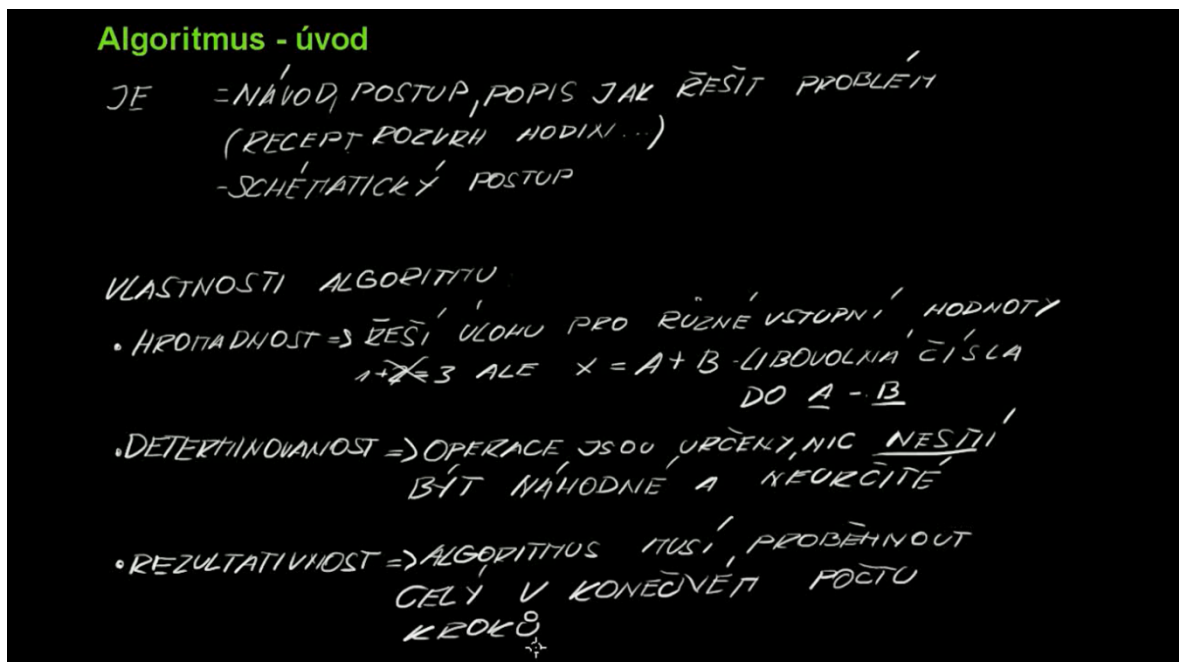 Algoritmus - úvod
JE = NÁVOD, POSTUP, POPIS JAK ŘEŠIT PROBLÉM
(RECEPT ROZVRH HODIN...)
- SCHÉMATICKÝ POSTUP
VLASTNOSTI ALGORITMU:
• HROMADNOST => ŘEŠÍ ÚLOHU PRO RŮZNÉ VSTUPNÍ HODNOTY
1+2=3 ALE X = A + B - LIBOVOLNÁ ČÍSLA
DO A - B
• DETERMINOVANOST => OPERACE JSOU URČENY, NIC NESMÍ
BÝT NÁHODNÉ A NEURČITÉ
• REZULTATIVNOST => ALGORITMUS MUSÍ PROBĚHNOUT
CELÝ V KONEČNÉM POČTU
KROKŮ